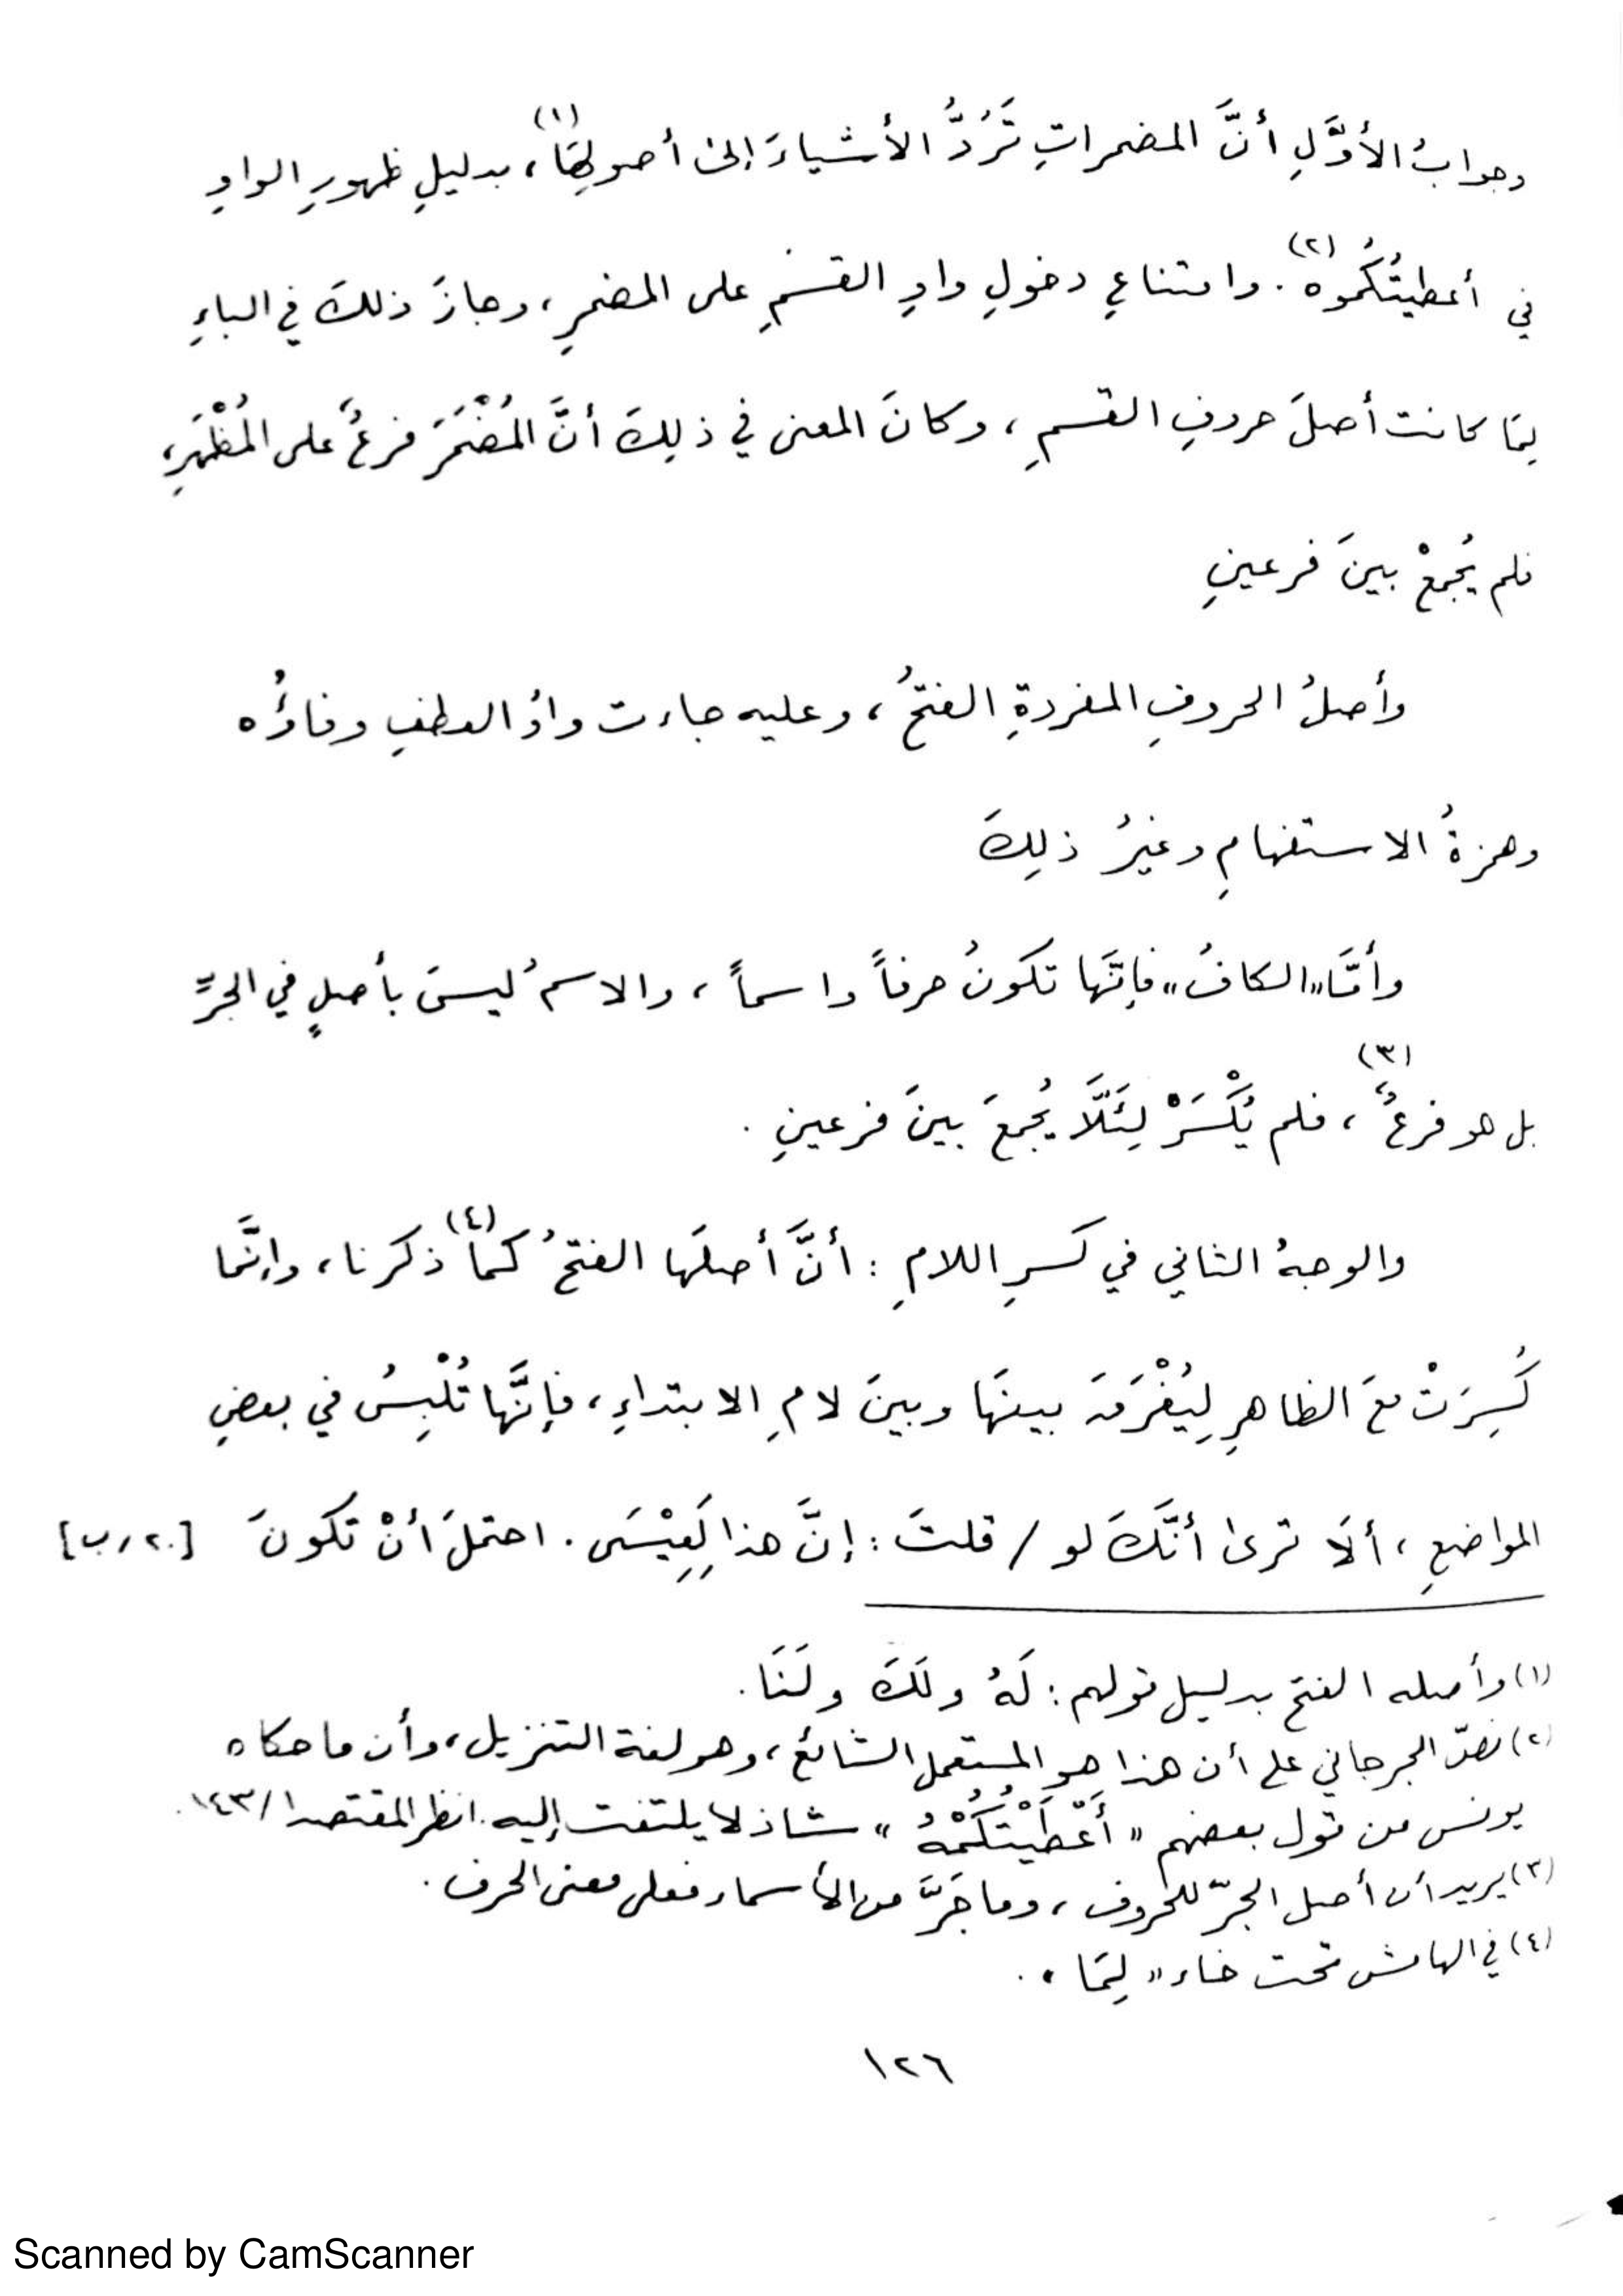 وجوابُ الأوَّلِ أنَّ المضمراتِ تَرُدُّ الأشياءَ إلىٰ أصولِهَا(١)، بدليلِ ظهورِ الواوِ
في أعطيتُكُموهُ(٢). وامتناعِ دخولِ واوِ القسَمِ على المضمرِ، وجازَ ذلكَ في الباءِ
لِمَا كانت أصلَ حروفِ القسمِ، وكانَ المعنى في ذلِكَ أنَّ المُضْمَرَ فرعٌ على المُظْهَرِ،
فلم يُجمعْ بينَ فرعينِ
وأصلُ الحروفِ المفردةِ الفتحُ، وعليه جاءت واوُ العطفِ وفاؤُه
وهمزةُ الاستفهامِ وغيرُ ذلِكَ
وأمَّا "الكافُ" فإنَّها تكونُ حرفاً واسماً، والاسمُ ليسَ بأصلٍ في الجرِّ
بل هو فرعٌ(٣)، فلم يُكْسَرْ لِئَلَّا يُجمعَ بينَ فرعينِ .
والوجهُ الثاني في كَسرِ اللامِ : أنَّ أصلَها الفتحُ كما(٤) ذكرنا، وإنَّما
كُسِرَتْ معَ الظاهرِ لِيُفْرَقَ بينَهَا وبينَ لامِ الابتداءِ، فإنَّها تُلْبِسُ في بعضِ
المواضعِ، ألَا ترىٰ أنَّكَ لو / قلتَ : إنَّ هذا لَعِيْسَى. احتملَ أنْ تكونَ [٢٠/ب]
(١) وأصله الفتح بدليل قولهم : لَهُ ولَكَ ولَنَا.
(٢) نصّ الجرجاني على أن هذا هو المستعمل الشائع، وهو لغة التنزيل، وأن ما حكاه
يونس من قول بعضهم "أَعْطَيْتُكُمْهُ" شاذ لا يلتفت إليه. انظر المقتصد ١/١٤٣.
(٣) يريد أن أصل الجرّ للحروف، وما جَرَّ من الأسماء فعلى معنى الحرف.
(٤) في الهامش تحت خاء "لِمَا".
١٢٦
Scanned by CamScanner